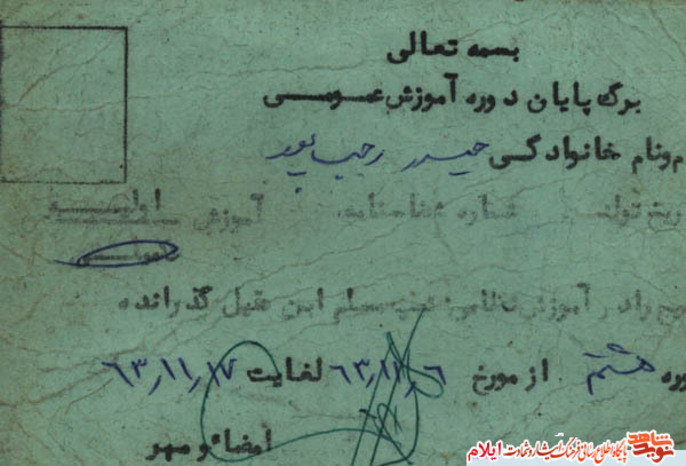 بسمه تعالی
برگ پایان دوره آموزش عمومی
م ونام خانوادگی حیدر رجب پور
ریخ تولد شماره شناسنامه آموزش اولیه
یج رادر آموزش نظامی مسلم ابن عقیل گذرانده
وره هشتم از مورخ ۶ ر ۱۱ ر ۶۳ لغایت ۱۷ ر ۱۱ ر ۶۳
امضاء و مهر
نوید شاهد
پایگاه اطلاع رسانی فرهنگ ایثار و شهادت ایلام